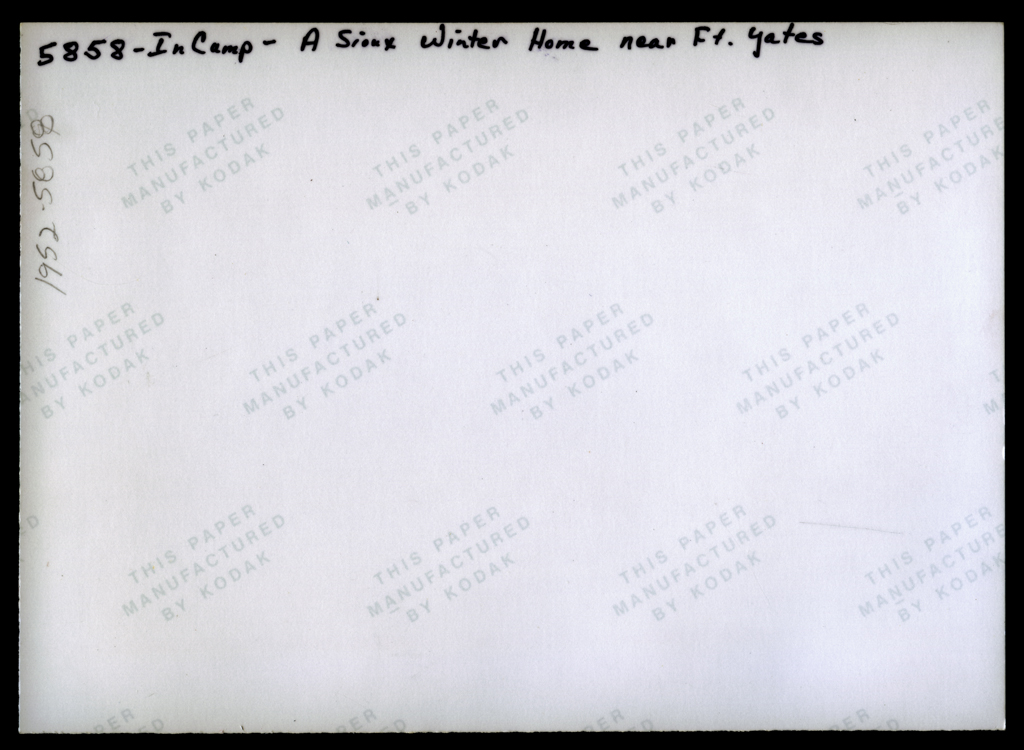 5858-In Camp- A Sioux Winter Home near Ft. Yates
1952-5858
THIS PAPER
MANUFACTURED
BY KODAK
THIS PAPER
MANUFACTURED
BY KODAK
THIS PAPER
MANUFACTURED
BY KODAK
THIS PAPER
MANUFACTURE
BY KODAK
HIS PAPER
ANUFACTURED
BY KODAK
THIS PAPER
MANUFACTURED
BY KODAK
THIS PAPER
MANUFACTURED
BY KODAK
THIS PAPER
MANUFACTURED
BY KODAK
T
M
D
THIS PAPER
MANUFACTURED
BY KODAK
THIS PAPER
MANUFACTURED
BY KODAK
THIS PAPER
MANUFACTURED
BY KODAK
THIS PAPER
MANUFACTURE
BY KODAK
PER
D
PER
D
PER
D
PER
D